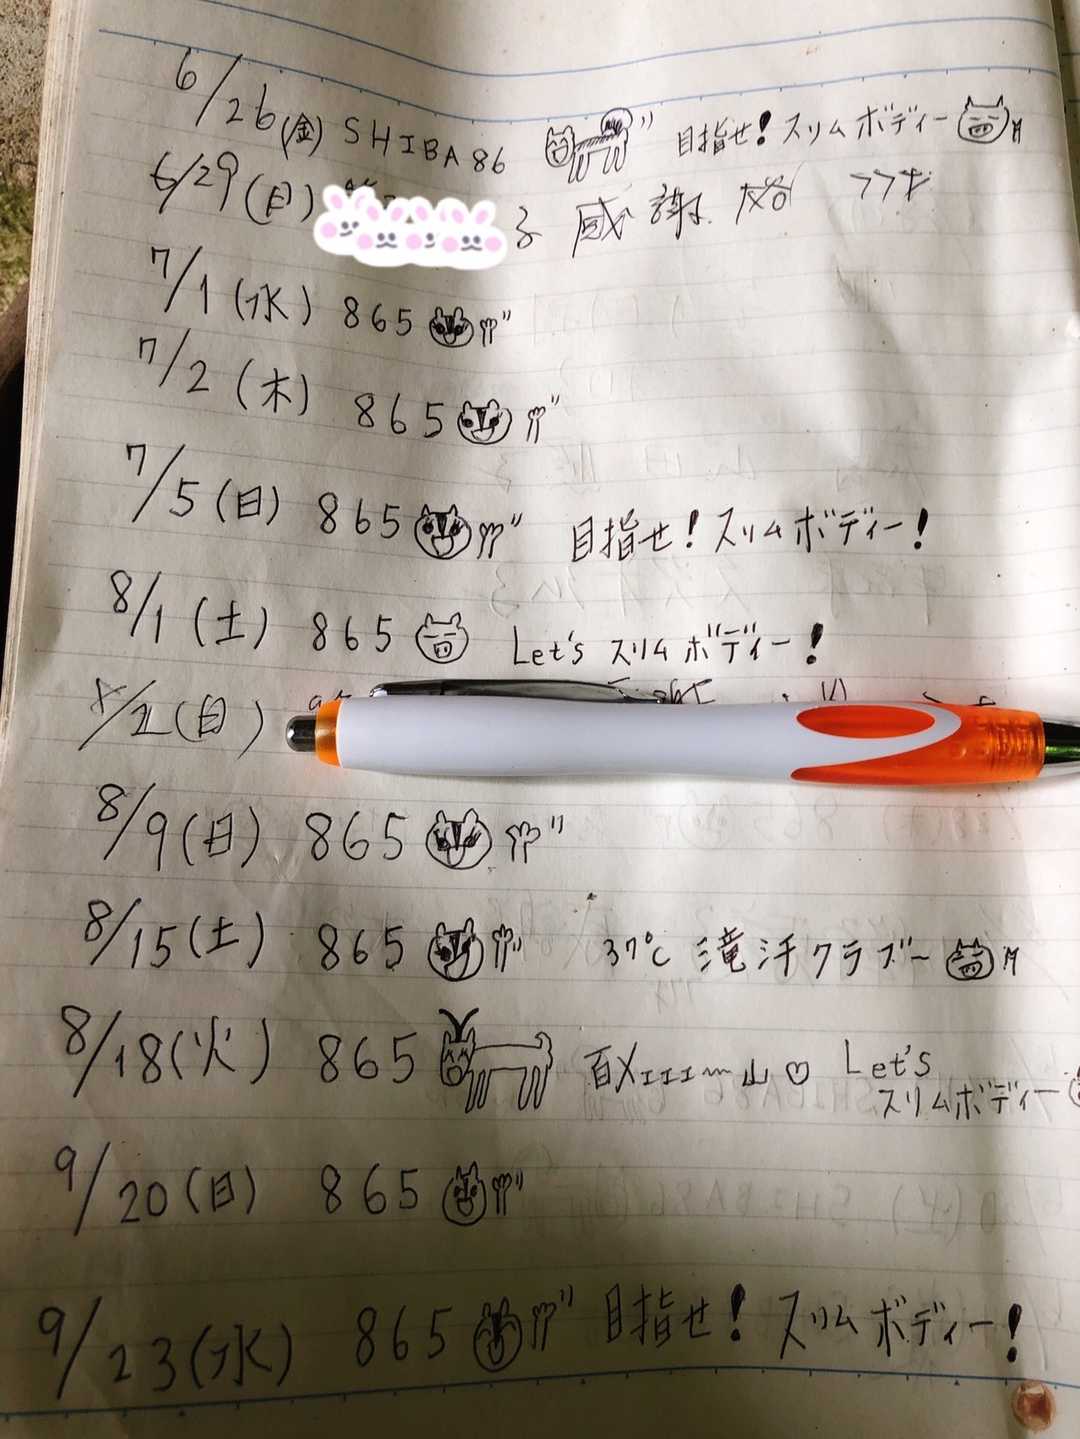 6/26(金) SHIBA86 目指せ！スリムボディー
6/29(日) 感謝
7/1(水) 865
7/2(木) 865
7/5(日) 865 目指せ！スリムボディー！
8/1(土) 865 Let's スリムボディー！
(日)
8/9(日) 865
8/15(土) 865 37℃ 滝汗クラブー
8/18(火) 865 百メェェェ〜山♡ Let's
スリムボディー
9/20(日) 865
9/23(水) 865 目指せ！スリムボディー！